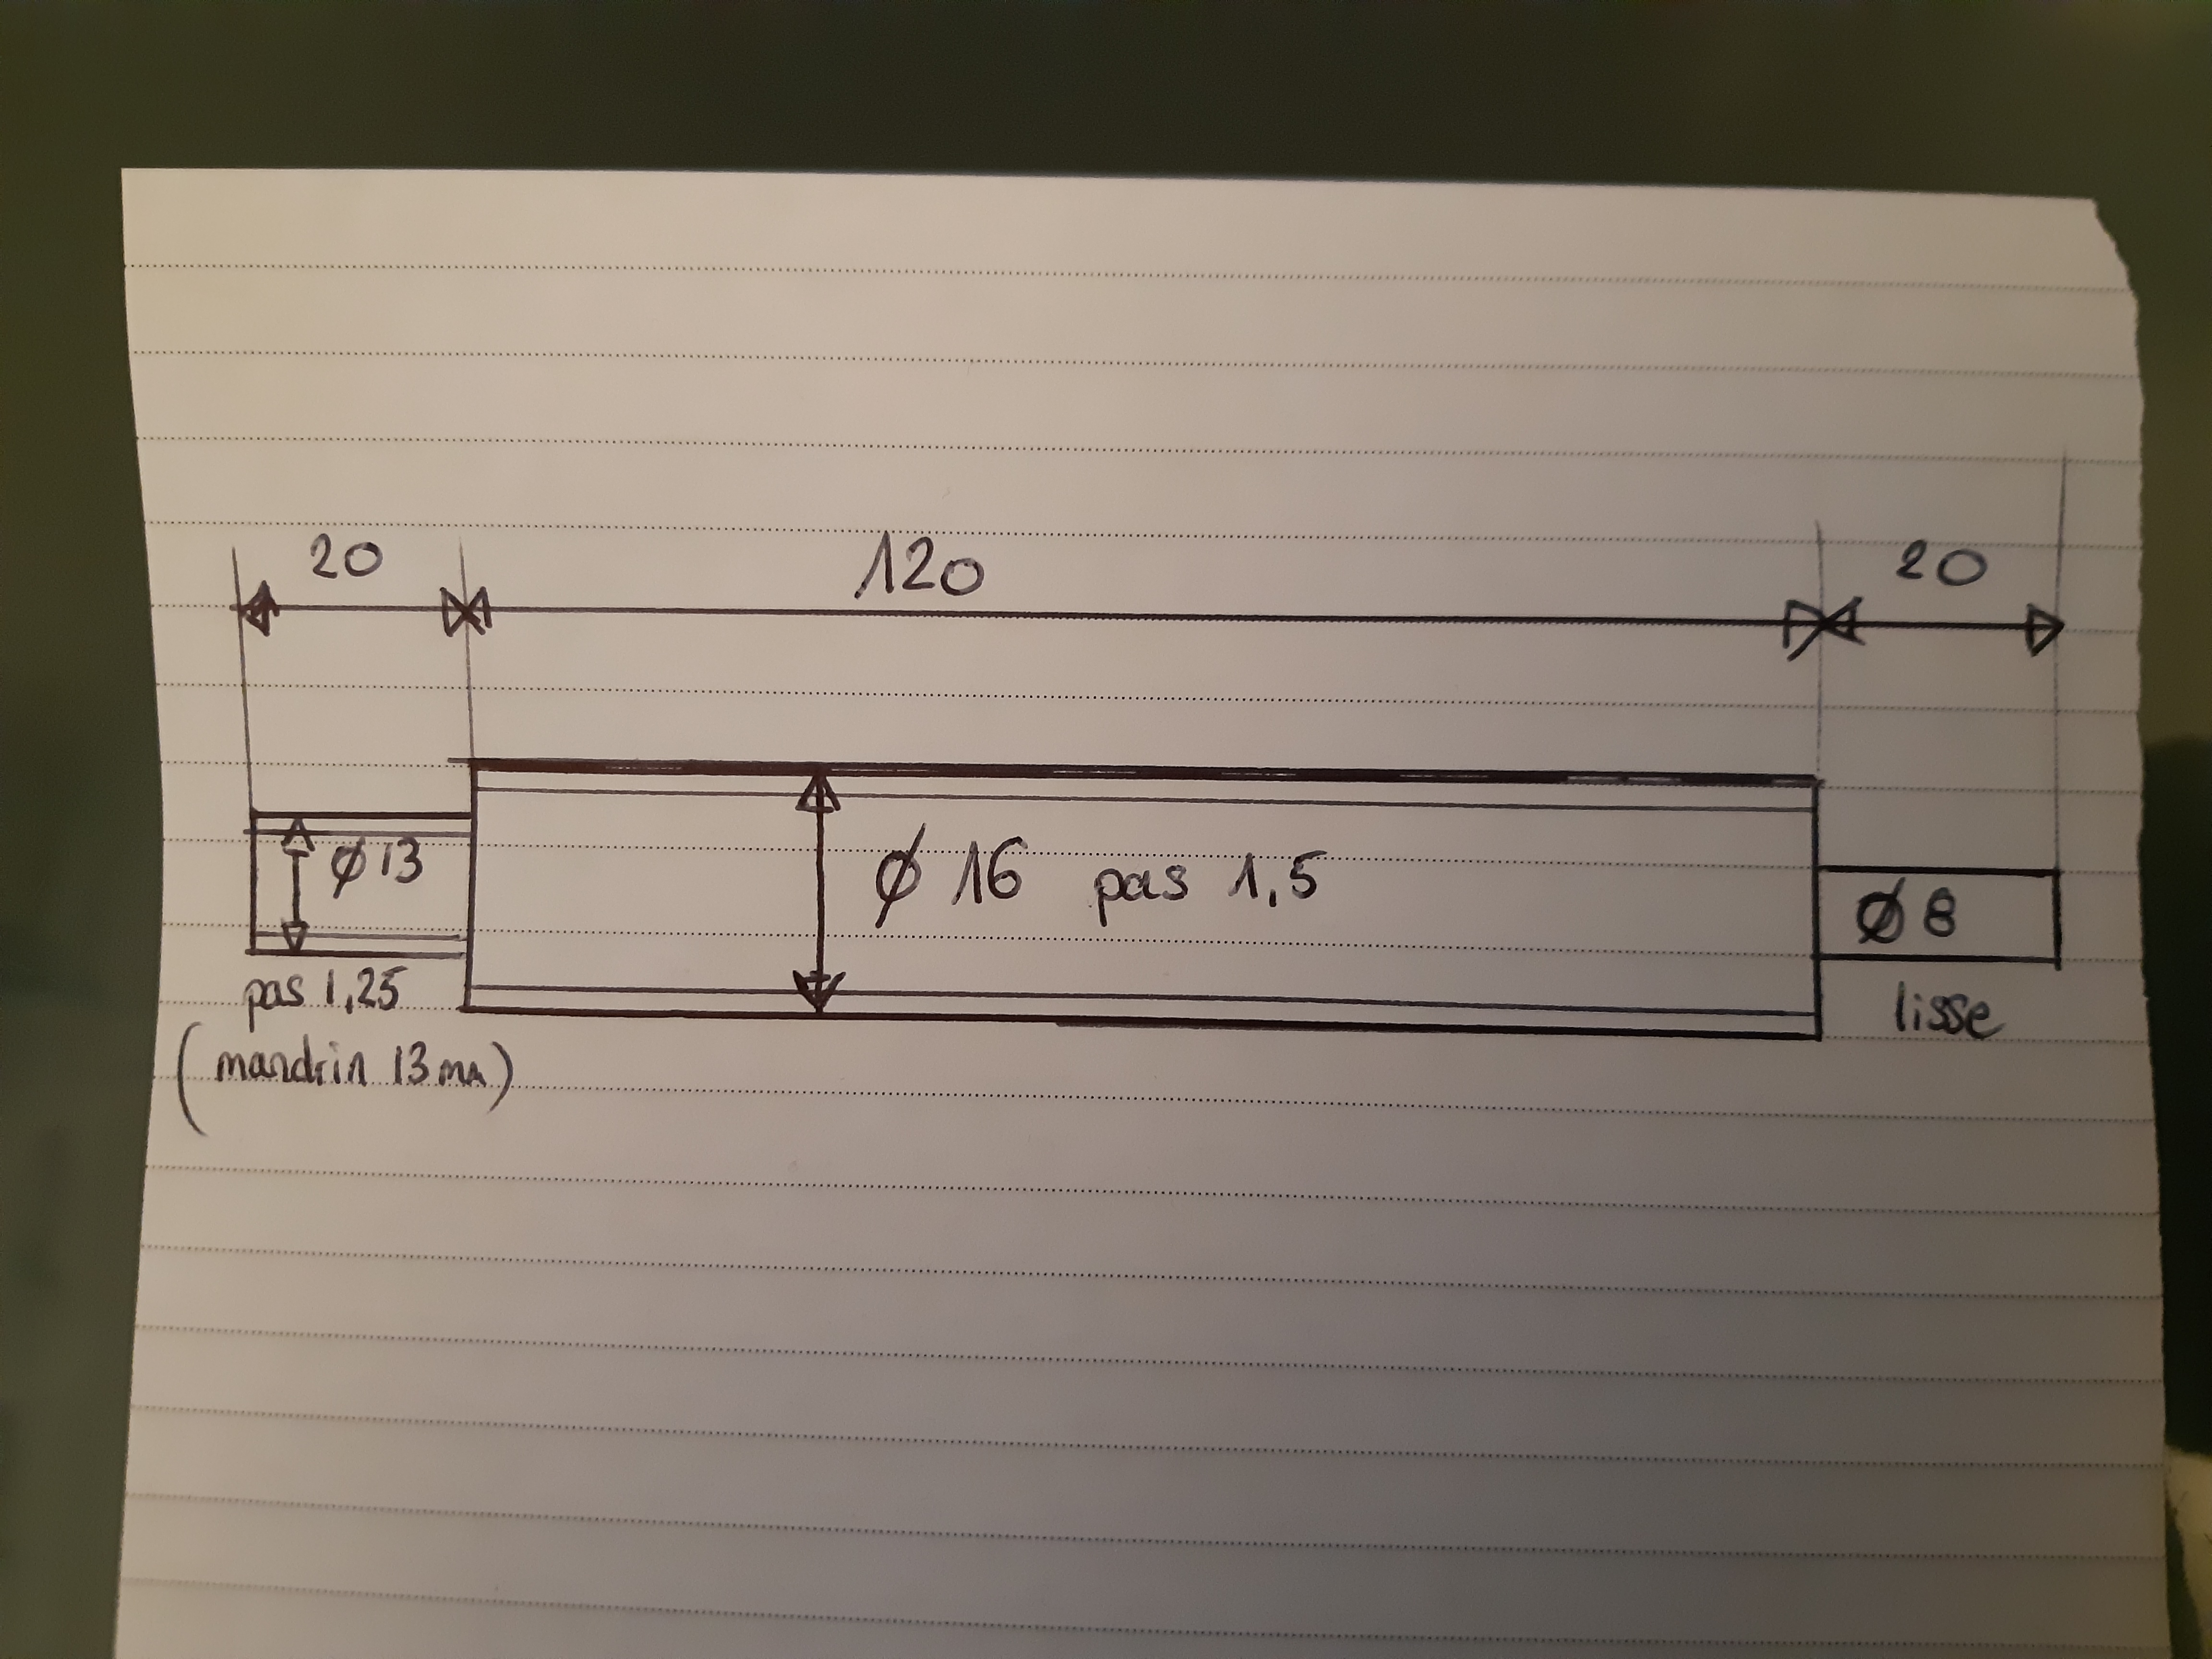 20 120 20
Ø 13
Ø 16 pas 1,5
Ø 8
pas 1,25
lisse
(mandrin 13 mm)